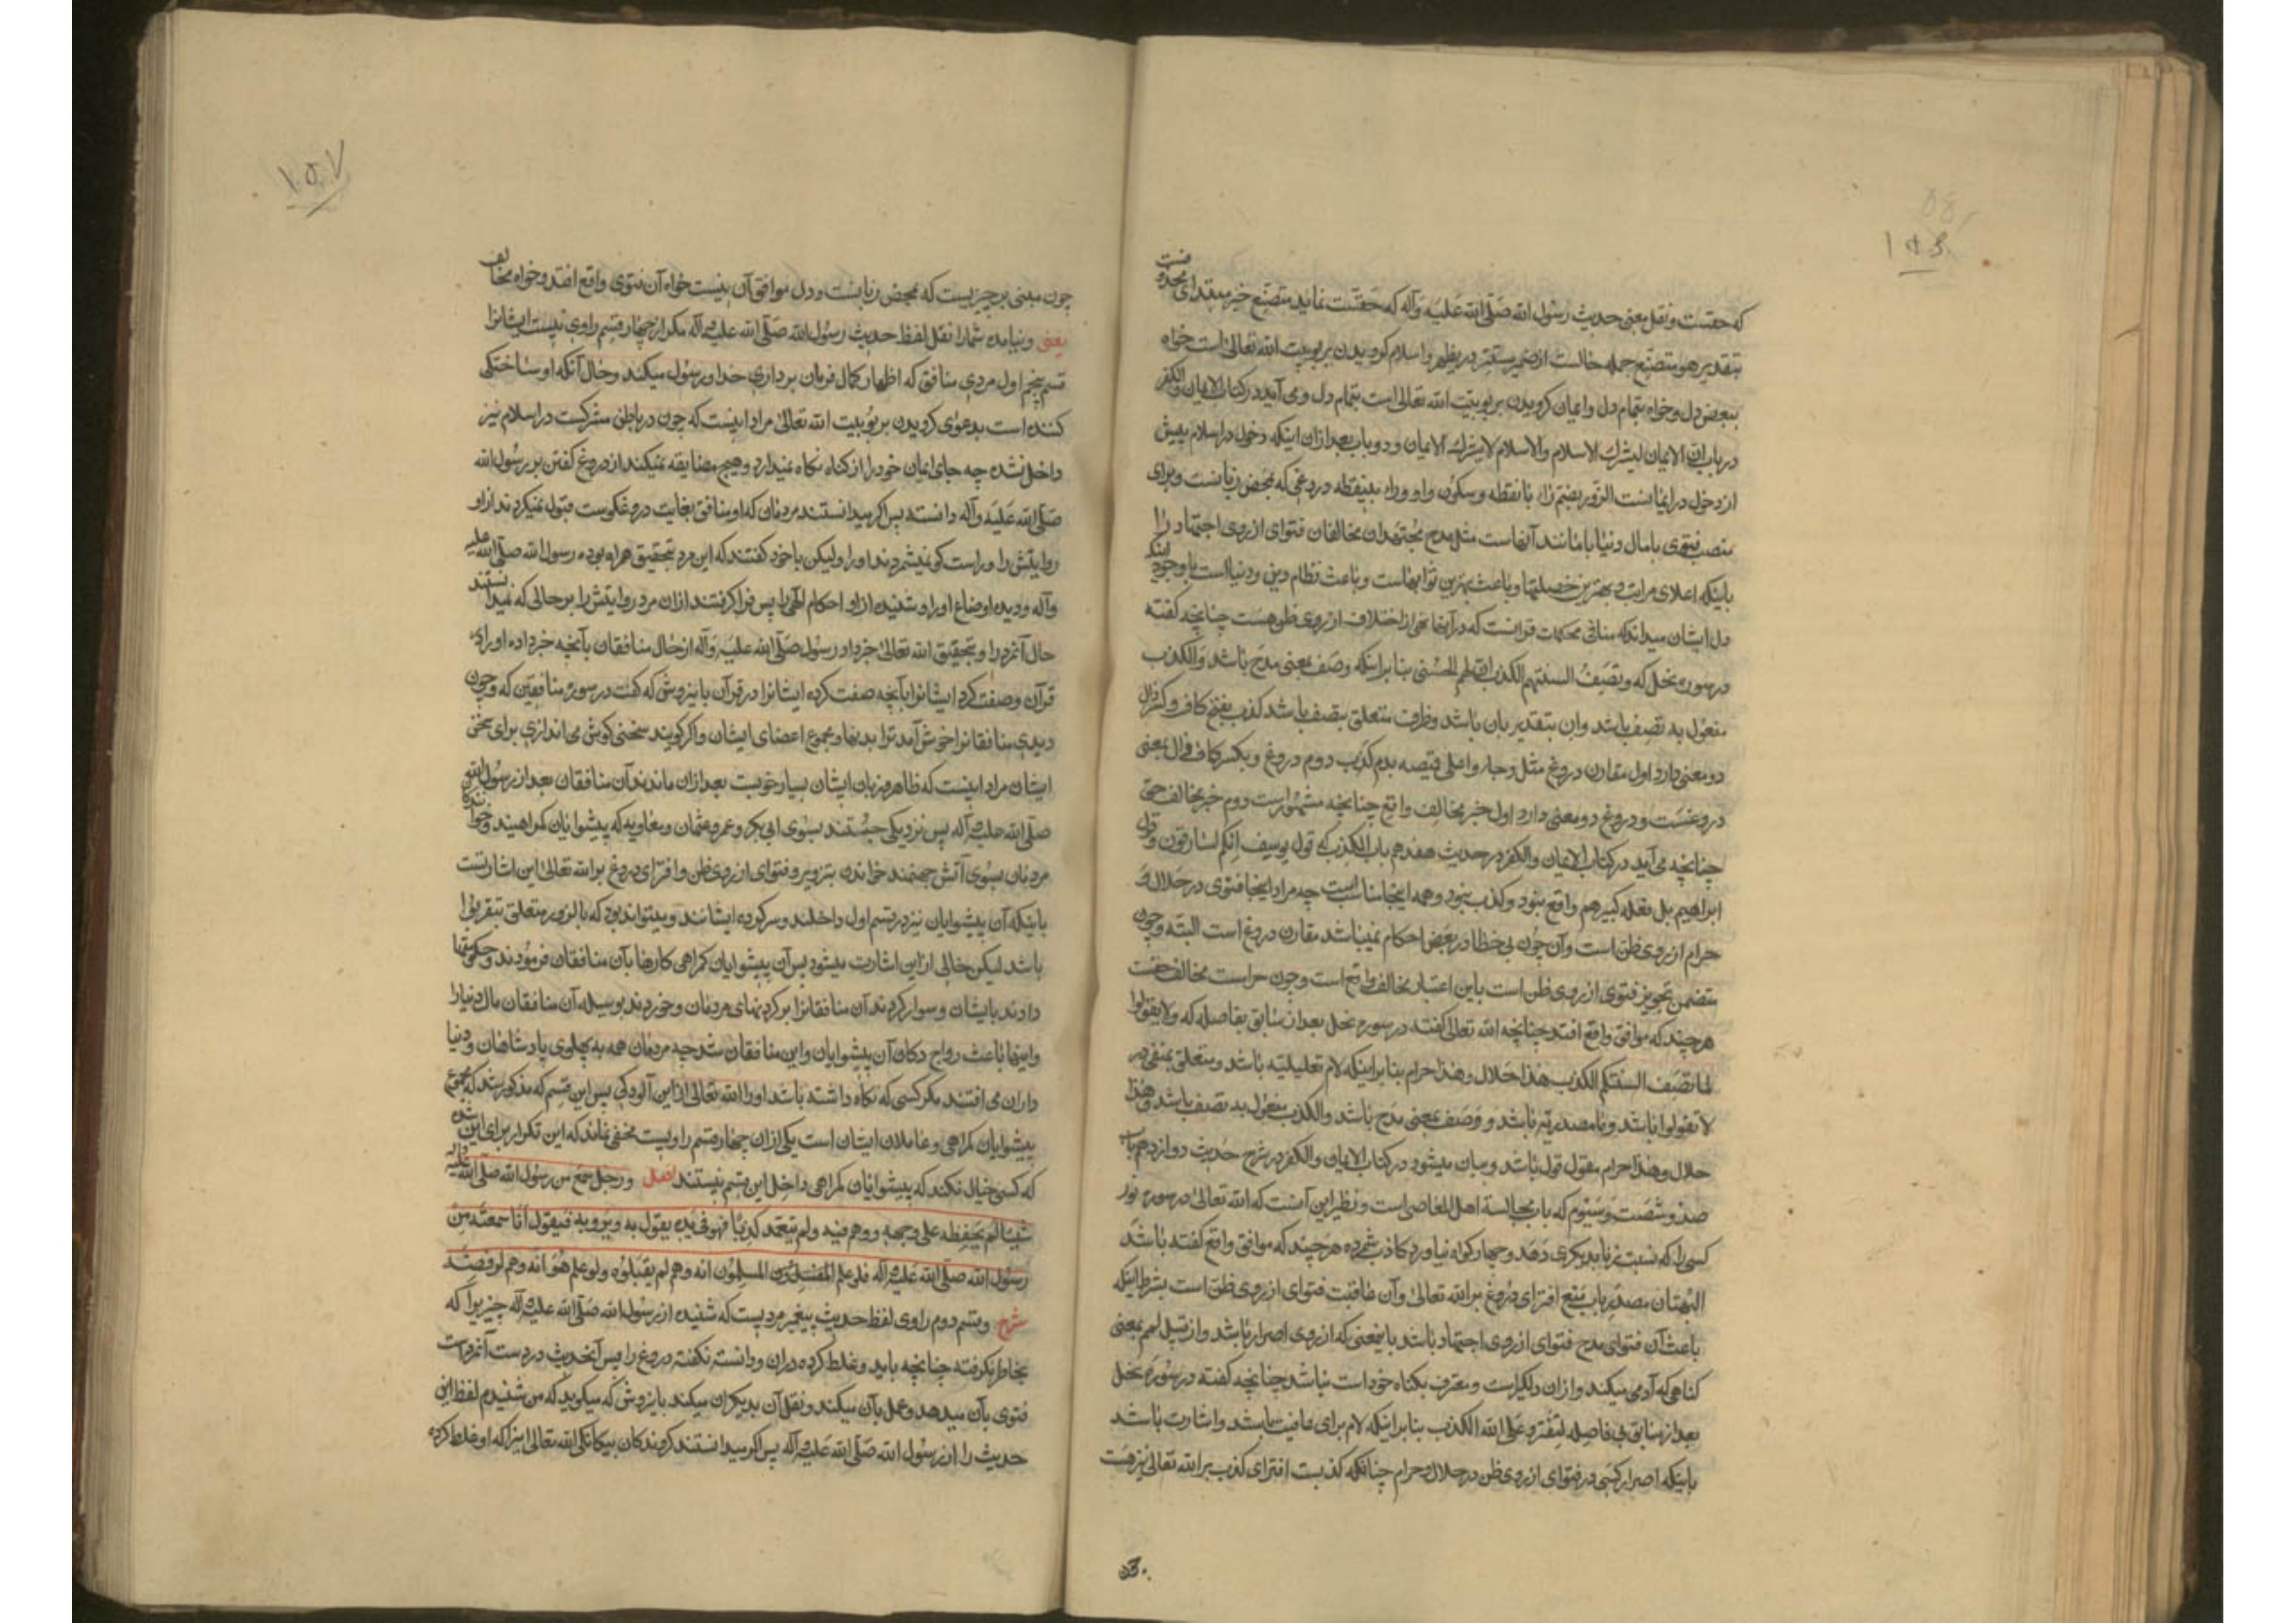 که حقست و نقل معنی حدیث رسول الله صلی الله علیه وآله که حقست نماید متصنع خبر مبتدای محذوفست
بتقدیر هو متصنع جمله حالست از ضمیر مستتر در یظهر و اسلام گرویدن بربوبیت الله تعالی است خواه
ببعض دل و خواه بتمام دل و ایمان گرویدن بربوبیت الله تعالی است بتمام دل و می آید در کتاب الایمان والکفر
در باب ان الایمان یشرك الاسلام والاسلام لا یشرك الایمان و دو باب بعد از ان اینکه دخول در اسلام پیش
از دخول در ایمانست الزور بضم زاء با نقطه و سکون واو و راء بینقطه دروغی که بمحض زبانست و برای
منصب فتوی یا مال دنیا یا مانند آنهاست مثل مدح مجتهدان مخالفان فتوای از روی اجتهاد را
باینکه اعلای مراتب و بهترین خصلتها و باعث بهترین ثوابهاست و باعث نظام دین و دنیاست با وجود اینکه
دل ایشان میداند که منافی محکمات قرآنست که در آنها نهی از اختلاف از روی ظن هست چنانچه گفته
در سوره نحل که وتصف السنتهم الکذب ان لهم الحسنی بنا بر اینکه وصف بمعنی مدح باشد والکذب
مفعول به تصف باشد وان بتقدیر بان باشد و ظرف متعلق بتصف باشد کذب بفتح کاف و کسر ذال
دو معنی دارد اول مقارن دروغ مثل وجاءوا علی قمیصه بدم کذب دوم دروغ و بکسر کاف ذال بمعنی
دروغست و دروغ دو معنی دارد اول خبر مخالف واقع چنانچه مشهور است دوم خبر مخالف حق
چنانچه می آید در کتاب الایمان والکفر در حدیث هفدهم باب الکذب که قول یوسف انکم لسارقون و قول
ابراهیم بل فعله کبیرهم واقع نبود و کذب نبود و همه اینجا مناسب است چه مراد اینجا فتوی در حلال و
حرام از روی ظن است و آن چون بی خطا در بعض احکام نمیباشد مقارن دروغ است البته و چون
متضمن تجویز فتوی از روی ظن است باین اعتبار مخالف واقع است و چون حرامست مخالف حقست
هر چند که موافق واقع افتد چنانچه الله تعالی گفته در سوره نحل بعد از سابق بفاصله که ولا تقولوا
لما تصف السنتکم الکذب هذا حلال وهذا حرام بنا بر اینکه لام تعلیلیه باشد و متعلق بمنفی در
لا تقولوا باشد و ما مصدریه باشد و وصف بمعنی مدح باشد والکذب مفعول به تصف باشد وهذا
حلال وهذا حرام مقول قول باشد و بیان میشود در کتاب الایمان والکفر در شرح حدیث دوازدهم باب
صد و شصت و سیوم که باب مجالسة اهل المعاصی است و نظیر این آنست که الله تعالی در سوره نور
کسی را که نسبت زنا بدیگری دهد و چهار گواه نیاورد کاذب شمرده هر چند که موافق واقع گفته باشد
البهتان مصدر باب منع افترای دروغ بر الله تعالی و آن عاقبت فتوای از روی ظن است بشرط اینکه
باعث آن فتوای مدح فتوای از روی اجتهاد باشد باینمعنی که از روی اصرار باشد و از قبیل لمم بمعنی
گناهی که آدمی میکند و از ان دلگیر است و معترف بگناه خود است نباشد چنانچه گفته در سوره نحل
بعد از سابق بی فاصله لتفتروا علی الله الکذب بنا بر اینکه لام برای عاقبت باشد و اشارت باشد
باینکه اصرار کسی در فتوای از روی ظن در حلال و حرام چنانکه کذبست افترای کذب بر الله تعالی نیز هست
چون
چون مبنی بر چیزیست که بمحض زبانست و دل موافق آن نیست خواه آن فتوی واقع افتد و خواه مخالف
یعنی و نیامده شما را نقل لفظ حدیث رسول الله صلی الله علیه وآله مگر از چهار قسم راوی نیست ایشانرا
قسم پنجم اول مردی منافق که اظهار کمال فرمان برداری خدا و رسول میکند و حال آنکه او ساختگی
کننده است بدعوای گرویدن بربوبیت الله تعالی مراد اینست که چون در باطن مشرکست در اسلام نیز
داخل نشده چه جای ایمان خود را از گناه نگاه نمیدارد و هیچ مضایقه نمیکند از دروغ گفتن بر رسول الله
صلی الله علیه وآله دانسته پس اگر میدانستند مردمان که او منافق بغایت دروغگوست قبول نمیکردند از او
روایتش را و راست گو نمیشمردند او را ولیکن با خود گفتند که این مرد بتحقیق همراه بوده رسول الله صلی الله علیه
وآله و دیده اوضاع او را و شنیده از او احکام الهی را پس فرا گرفتند از ان مرد روایتش را بر حالی که نمیدانستند
حال آنمرد را و بتحقیق الله تعالی خبر داد رسول صلی الله علیه وآله از حال منافقان بآنچه خبر داده او را در
قرآن و صفت کرد ایشانرا بآنچه صفت کرده ایشانرا در قرآن باینروش که گفت در سوره منافقین که و چون
دیدی منافقانرا خوش آمد ترا بدنها و مجموع اعضای ایشان و اگر گویند سخنی گوش می اندازی برای سخن
ایشان مراد اینست که ظاهر و زبان ایشان بسیار خوبست بعد از ان ماندند آن منافقان بعد از رسول الله
صلی الله علیه وآله پس نزدیکی جستند بسوی ابی بکر و عمر و عثمان و معاویه که پیشوایان گمراهیند و خوانندۀ
مردمان بسوی آتش جهنمند خواندن بتزویر و فتوای از روی ظن و افترای دروغ بر الله تعالی این اشارتست
باینکه آن پیشوایان نیز در قسم اول داخلند و سرکرده ایشانند و میتواند بود که بالزور متعلق بتقربوا
باشد لیکن خالی از این اشارت میشود پس آن پیشوایان گمراهی کارها بآن منافقان فرمودند و حکومتها
دادند بایشان و سوار کردند آن منافقانرا بر گردنهای مردمان و خوردند بوسیله آن منافقان مال دنیا را
و اینها باعث رواج دکان آن پیشوایان و این منافقان شد چه مردمان همه به پهلوی پادشاهان و دنیا
داران می افتند مگر کسی که نگاه داشته باشد او را الله تعالی از این آلودگی پس این قسم که مذکور شد که مجموع
پیشوایان گمراهی و عاملان ایشان است یکی از ان چهار قسم راویست مخفی نماند که این تکرار برای این شده
که کسی خیال نکند که پیشوایان گمراهی داخل این قسم نیستند اصل ورجل سمع من رسول الله صلی الله علیه وآله
شیئا لم یحفظه علی وجهه ووهم فیه ولم یتعمد کذبا فهو فی یده یقول به ویرویه فیقول انا سمعته من
رسول الله صلی الله علیه وآله فلو علم المسلمون انه وهم لم یقبلوه ولو علم هو انه وهم لرفضه
شرح و قسم دوم راوی لفظ حدیث پیغمبر مردیست که شنیده از رسول الله صلی الله علیه وآله چیزیرا که
بخاطر نگرفته چنانچه باید و غلط کرده در ان و دانسته نگفته دروغ را پس آنحدیث در دست آنمردست
فتوی بآن میدهد و عمل بآن میکند و نقل آن بدیگران میکند باینروش که میگوید که من شنیدم لفظ این
حدیث را از رسول الله صلی الله علیه وآله پس اگر میدانستند گروندگان بیگانگی الله تعالی اینرا که او غلط کرده